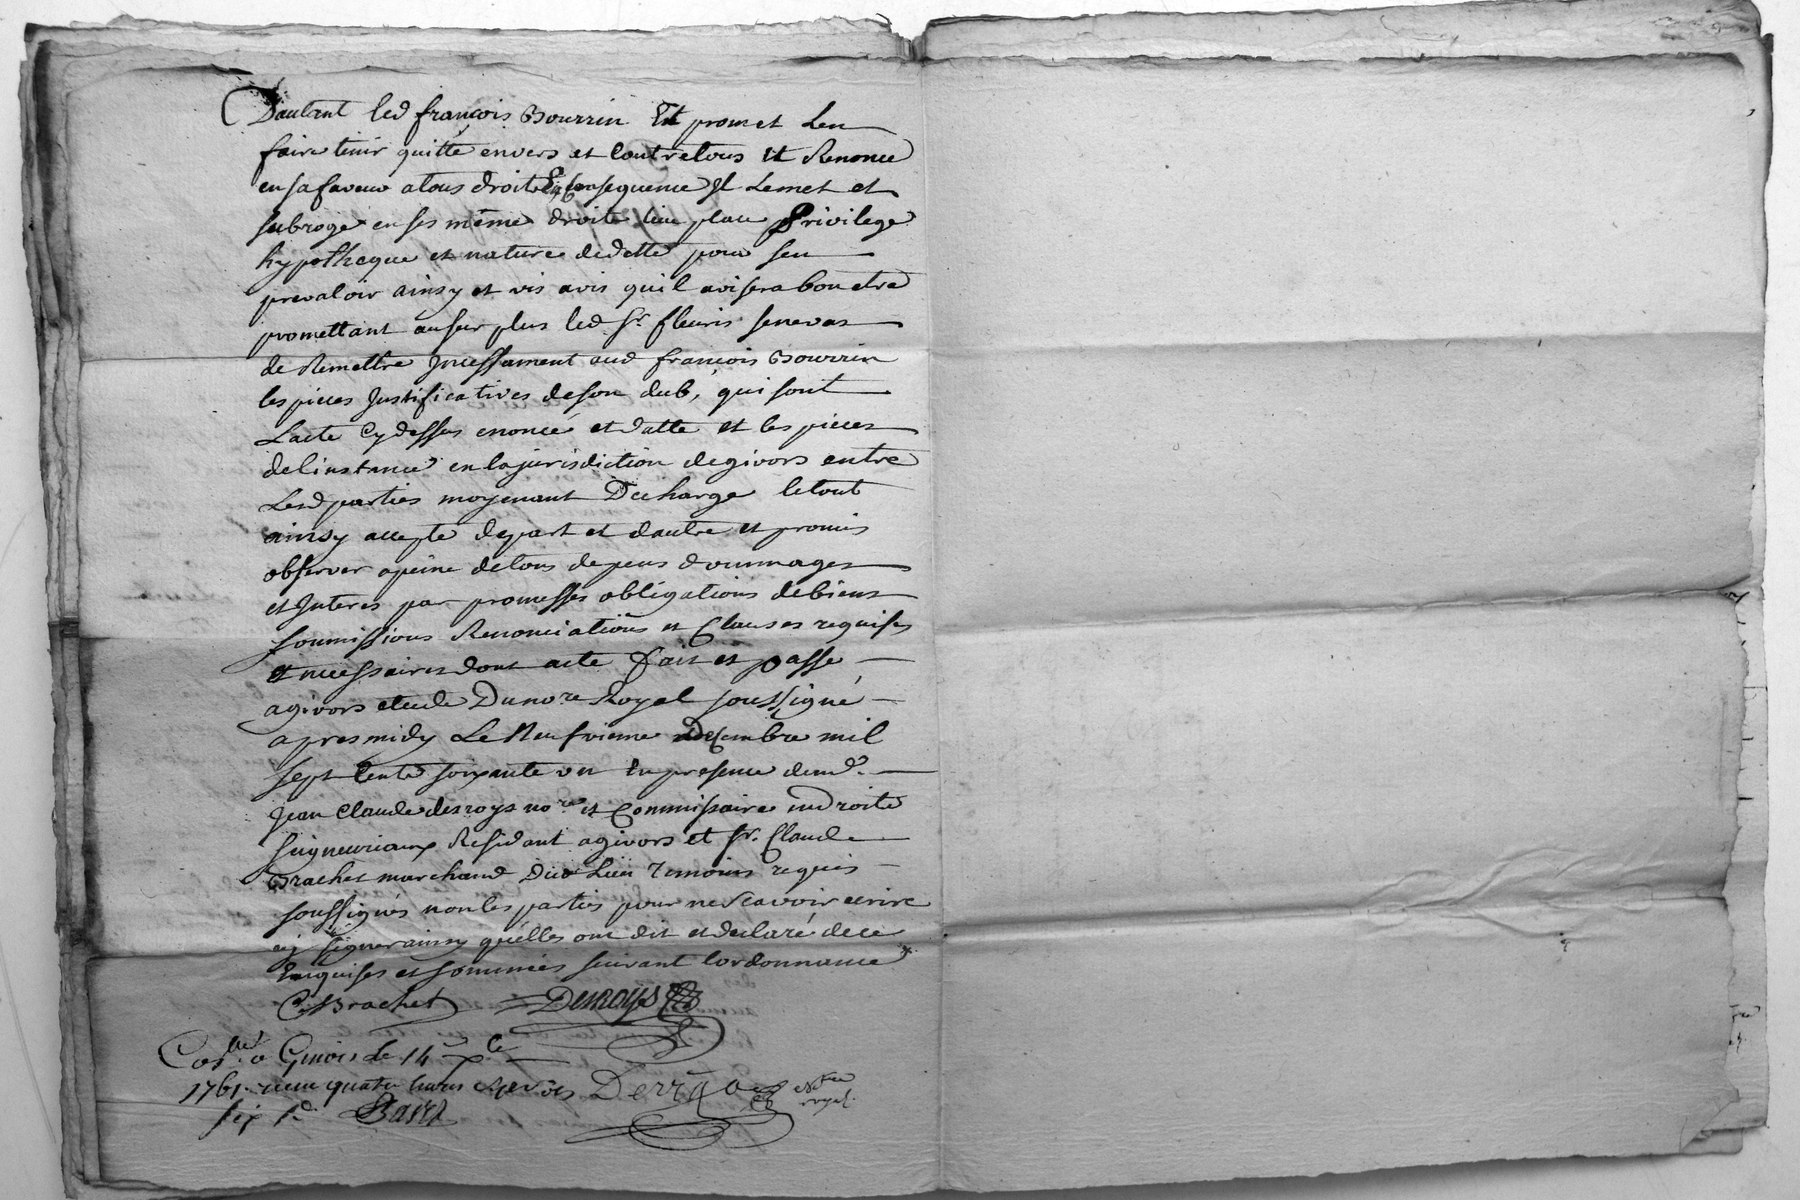 Dautant led françois Bourrin Et promet Len
faire tenir quitte envers et Contre tous Et Renonce
en sa faveur a tous droits En Consequence Jl Le met et
subroge en ses même droits lieu place Privilege
hypotheque et nature de dette pour sen
prevaloir ainsy et vis avis quil avisera bon etre
promettant au sur plus led Sr. fleuris senevas
de Remettre Jncessament aud françois Bourrin
les pieces Justificatives de son dub, qui sont
Lacte Cy dessus enoncé et datté et les pieces
de linstance en la jurisdiction de givors entre
Lesd parties moyenant Decharge le tout
ainsy accepté depart et dautre et promis
observer a peine de tous depens dommages
et Jnteres par promesses obligations de biens
soumissions Renonciations et Clauses requises
et necessaires dont acte fait et passé
a givors etude Du nore. Royal soussigné
apres midy Le Neufvieme decembre mil
sept Cents soixante un En presence de md.
Jean Claude desroys nore. et Commissaire en droits
seigneuriaux Residant a givors et sr. Claude
Brachet marchand dud Lieu temoins requis
soussignés non les parties pour ne scavoir ecrire
ny signer ainsy quélles ont dit et declaré de ce
Enquises et sommées suivant lordonnance
C. Brachet Desroys
Conllé a Givors Le 14 xbre
1761. recu quatre livres
six s.d.